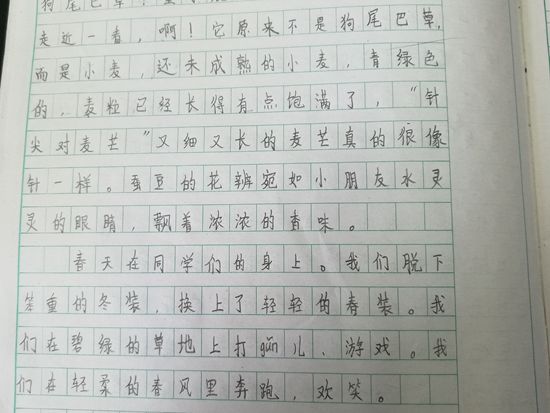 狗尾巴草！
走近一看，啊！它原来不是狗尾巴草，
而是小麦，还未成熟的小麦，青绿色
的，麦粒已经长得有点饱满了，“针
尖对麦芒”又细又长的麦芒真的很像
针一样。蚕豆的花辨宛如小朋友水灵
灵的眼睛，飘着浓浓的香味。
春天在同学们的身上。我们脱下
笨重的冬装，换上了轻轻的春装。我
们在碧绿的草地上打gǔn儿、游戏。我
们在轻柔的春风里奔跑，欢笑。